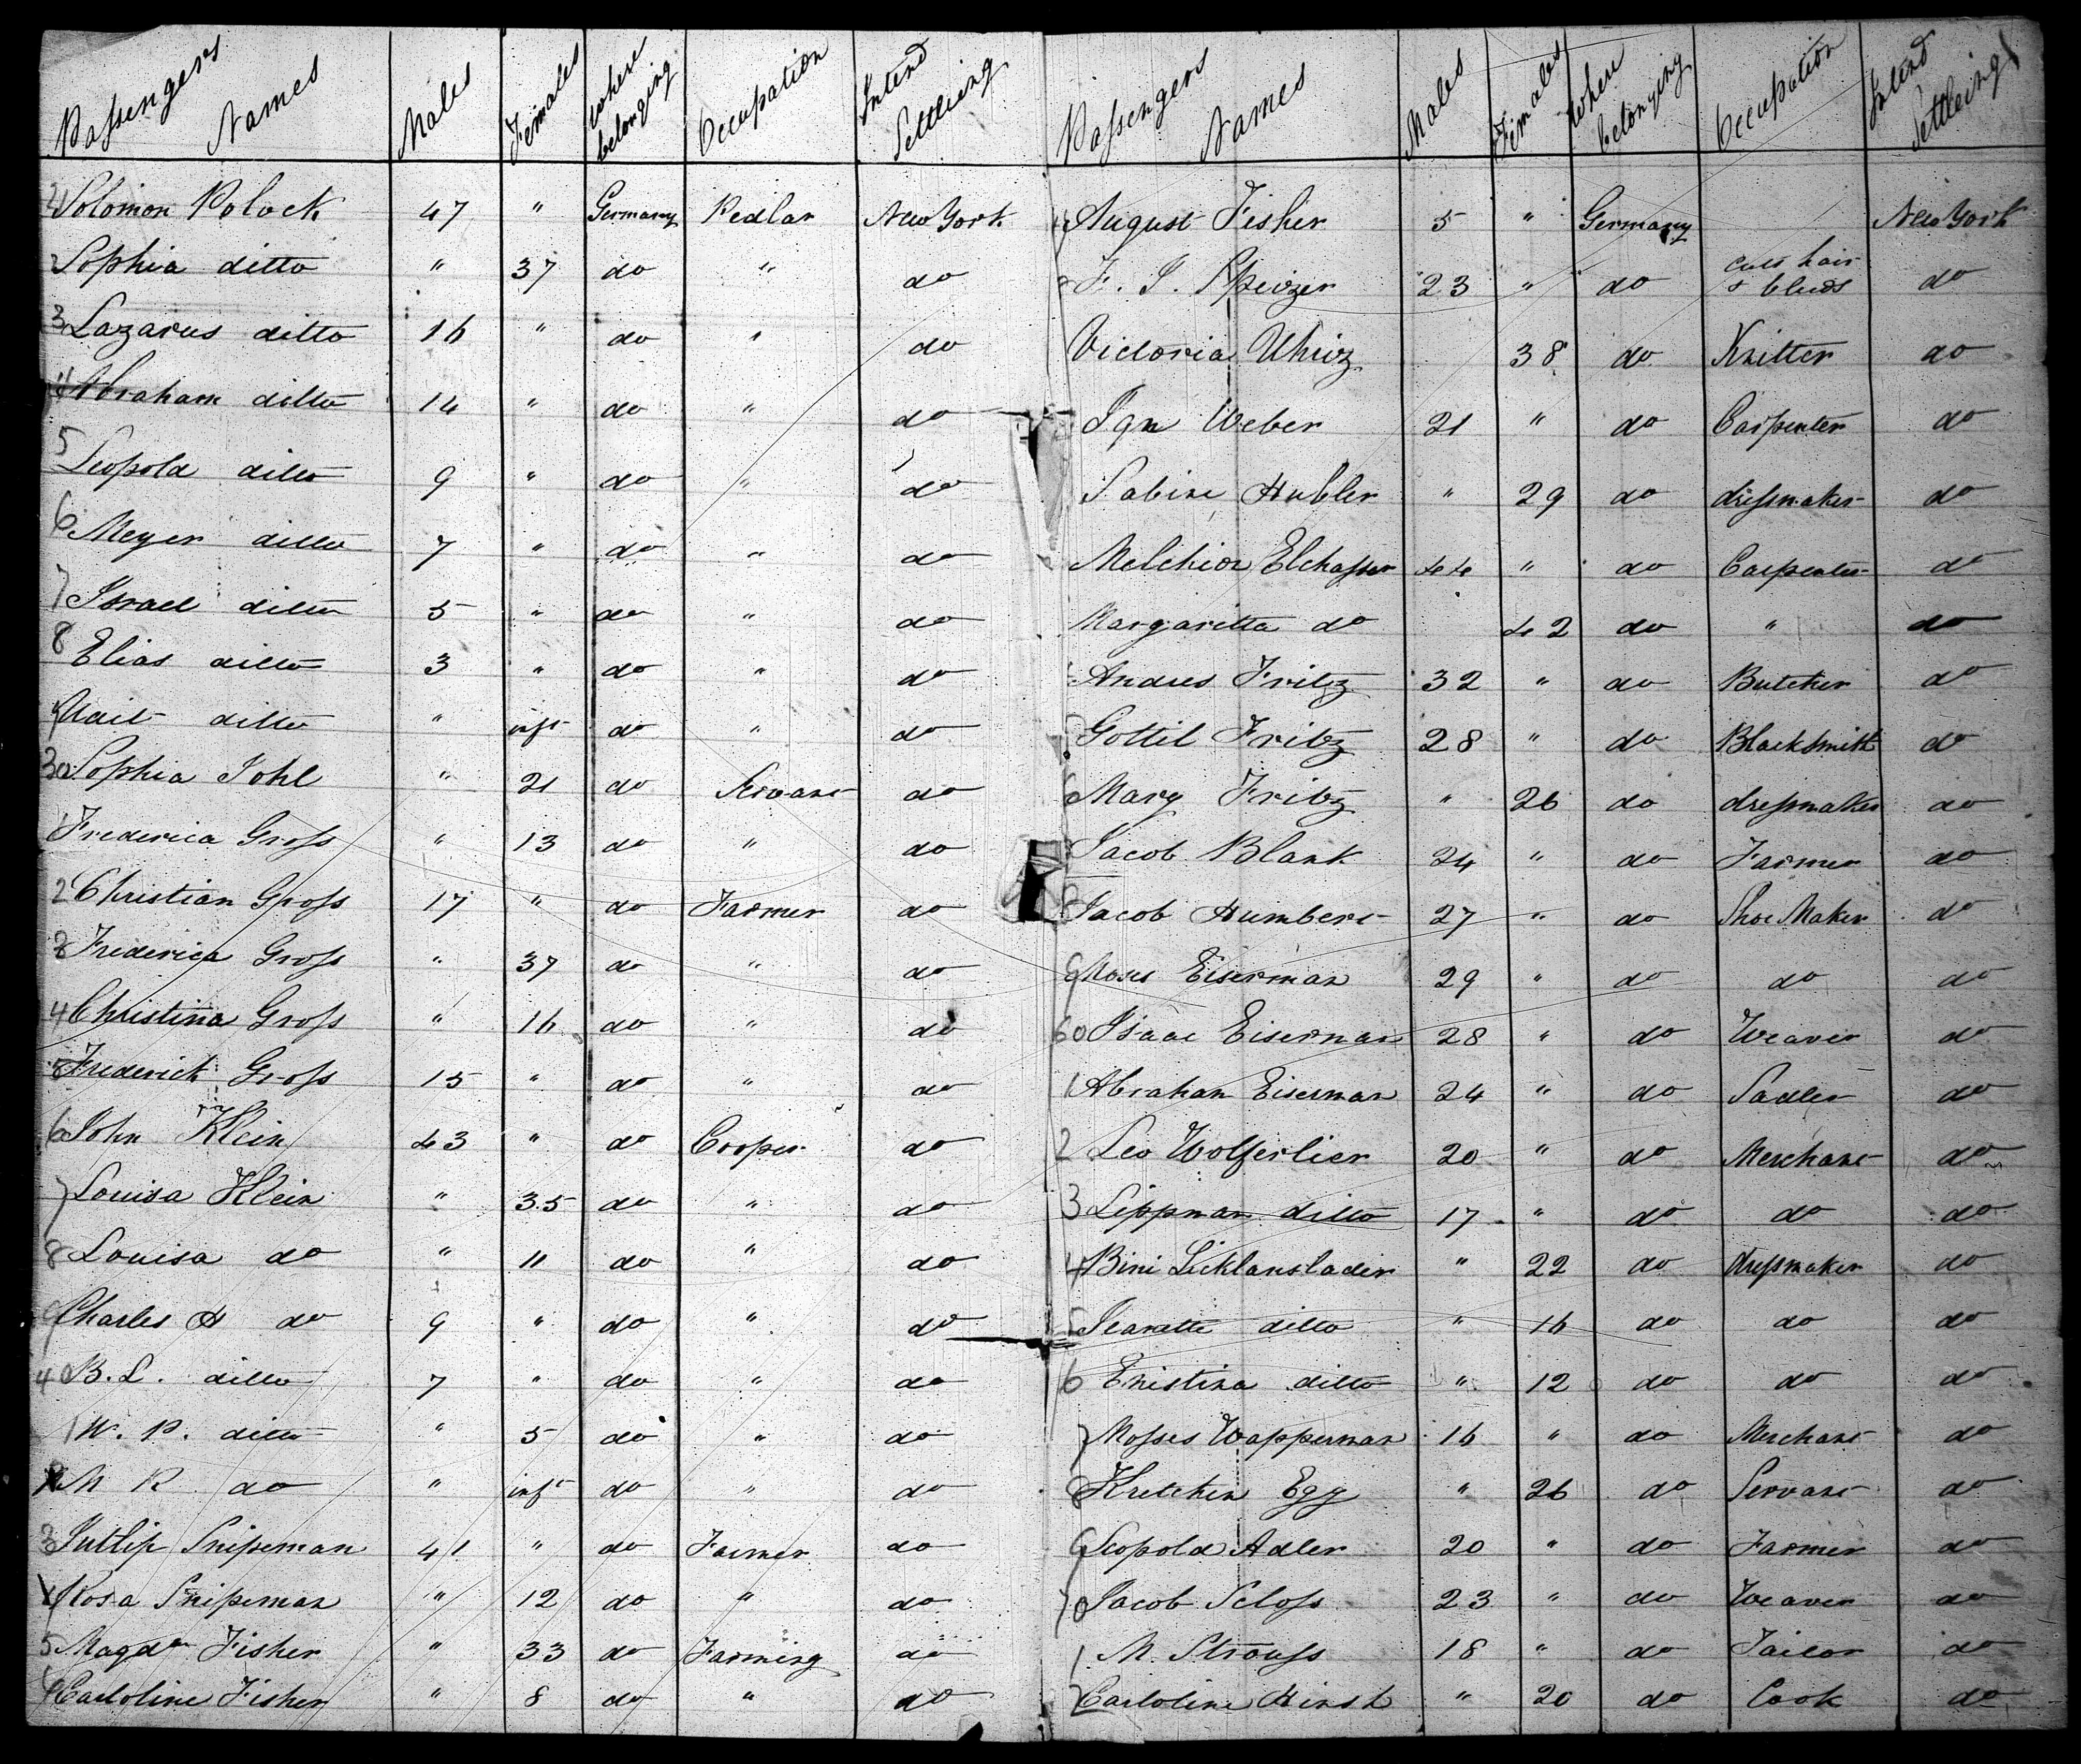 Passengers Names Males Females Where belonging Occupation Intend Settleing
21 Solomon Polock 47 " Germany Pedlar New York
2 Sophia ditto " 37 do " do
3 Lazarus ditto 16 " do " do
4 Abraham ditto 14 " do " do
5 Leopold ditto 9 " do " do
6 Meyer ditto 7 " do " do
7 Israel ditto 5 " do " do
8 Elias ditto 3 " do " do
9 ditto " inft do " do
30 Sophia Johl " 21 do Servant do
1 Frederica Gross " 13 do " do
2 Christian Gross 17 " do Farmer do
3 Frederica Gross " 37 do " do
4 Christina Gross " 16 do " do
5 Frederick Gross 15 " do " do
6 John Klein 43 " do Cooper do
7 Louisa Klein " 35 do " do
8 Louisa do " 11 do " do
9 Charles H do 9 " do " do
40 B. L. ditto 7 " do " do
1 W. P. ditto " 5 do " do
2 M R do " inft do " do
3 Jutlip Snipeman 41 " do Farmer do
4 Rosa Snipeman " 12 do " do
5 Magdn Fisher " 33 do Farming do
6 Carloline Fisher " 8 do " do
Passengers Names Males Females Where belonging Occupation Intend Settleing
7 August Fisher 5 " Germany New York
8 F. J. Speizer 23 " do cuts hair & bleeds do
Victoria Uhriz 38 do Knitter do
Ign Weber 21 " do Carpenter do
Sabine Hubler " 29 do dressmaker do
Melchior Elchasser 44 " do Carpenter do
Margaritta do 42 do " do
Andres Fritz 32 " do Butcher do
5 Gottil Fritz 28 " do Blacksmith do
6 Marg Fritz " 26 do dressmaker do
Jacob Blank 24 " do Farmer do
8 Jacob Humbert 27 " do Shoe Maker do
9 Moses Eiserman 29 " do do do
60 Isaac Eiserman 28 " do Weaver do
1 Abraham Eiserman 24 " do Sadler do
2 Leo Wolferlier 20 " do Merchant do
3 Lippman ditto 17 " do do do
4 Bini Licklanslader " 22 do dressmaker do
5 Jeanette ditto " 16 do do do
6 Enistina ditto " 12 do do do
7 Mosses Wapperman 16 " do Merchant do
8 Kretchen Egg " 26 do Servant do
9 Leopold Adler 20 " do Farmer do
70 Jacob Scloss 23 " do Weaver do
1 M. Strouss 18 " do Tailor do
2 Carloline Hirsh " 20 do Cook do